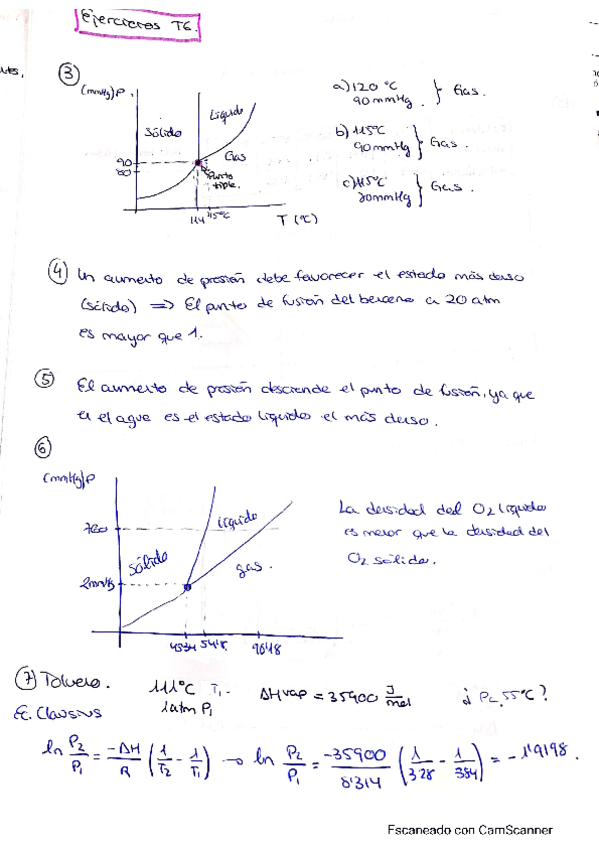 Ejercicios T6.
3
(mmHg) P
Sólido
Líquido
Gas
90
80
Punto
triple.
114
115°C
T (°C)
a) 120 °C
90 mmHg. } Gas.
b) 115°C
90 mmHg } Gas.
c) 115°C
20 mmHg } Gas.
4 Un aumento de presión debe favorecer el estado más denso
(sólido) => El punto de fusión del benceno a 20 atm
es mayor que 1.
5 El aumento de presión desciende el punto de fusión, ya que
en el agua es el estado líquido el más denso.
6
(mmHg) P
760
líquido
sólido
2mmHg
gas.
54'8
90'18
La densidad del O2 líquido
es menor que la densidad del
O2 sólido.
7) Tolueno. 111°C T1. ΔHvap = 35900 J/mol ¿P2, 55°C?
1atm P1
Ec. Clausius
ln P2/P1 = -ΔH/R (1/T2 - 1/T1) → ln P2/P1 = -35900/8'314 (1/328 - 1/384) = -1'9198.
Escaneado con CamScanner